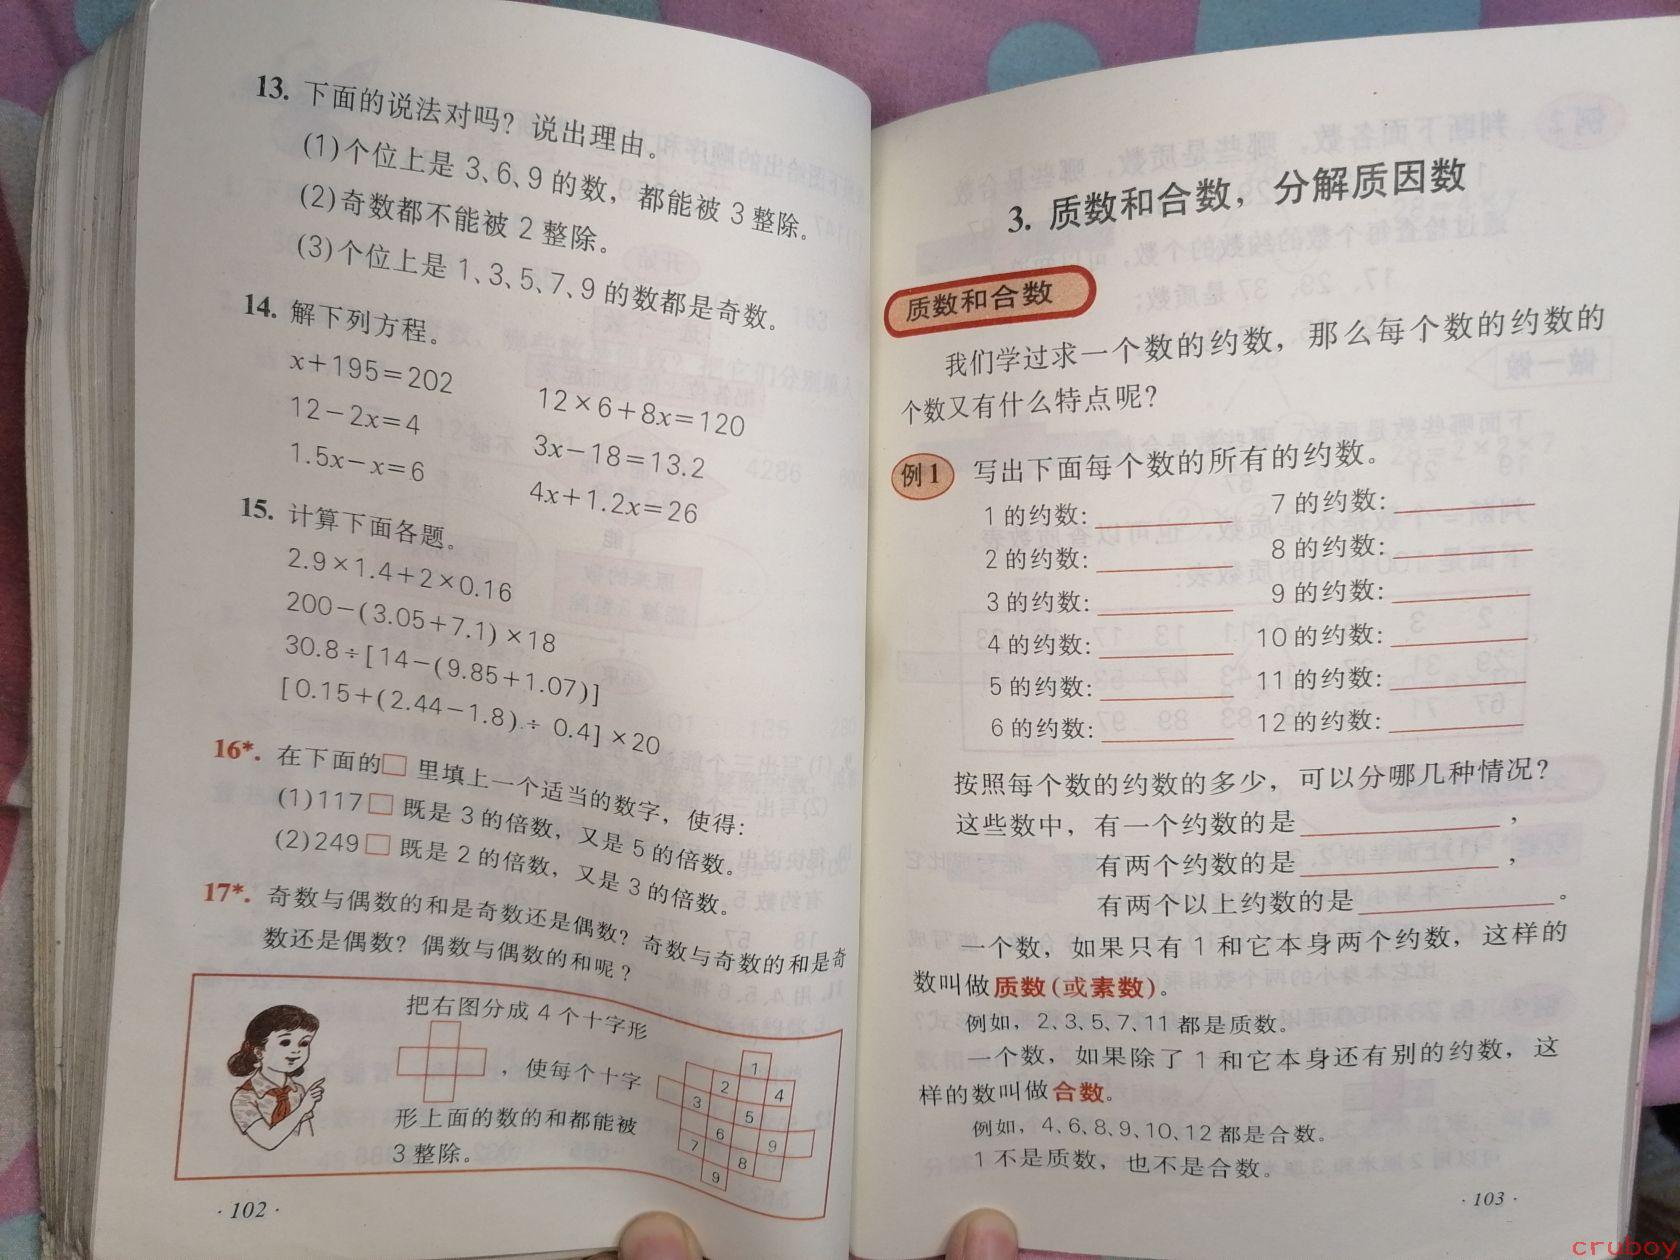 13. 下面的说法对吗？说出理由。
(1)个位上是 3、6、9 的数，都能被 3 整除。
(2)奇数都不能被 2 整除。
(3)个位上是 1、3、5、7、9 的数都是奇数。
14. 解下列方程。
x+195=202
12×6+8x=120
12-2x=4
3x-18=13.2
1.5x-x=6
4x+1.2x=26
15. 计算下面各题。
2.9×1.4+2×0.16
200-(3.05+7.1)×18
30.8÷[14-(9.85+1.07)]
[0.15+(2.44-1.8)÷0.4]×20
16*. 在下面的□里填上一个适当的数字，使得：
(1)117□既是 3 的倍数，又是 5 的倍数。
(2)249□既是 2 的倍数，又是 3 的倍数。
17*. 奇数与偶数的和是奇数还是偶数？奇数与奇数的和是奇
数还是偶数？偶数与偶数的和呢？
把右图分成 4 个十字形
，使每个十字
形上面的数的和都能被
3 整除。
1
2 4
3 5
6 9
7 8
9
·102·
3. 质数和合数，分解质因数
质数和合数
我们学过求一个数的约数，那么每个数的约数的
个数又有什么特点呢？
例1 写出下面每个数的所有的约数。
1 的约数： 7 的约数：
2 的约数： 8 的约数：
3 的约数： 9 的约数：
4 的约数： 10 的约数：
5 的约数： 11 的约数：
6 的约数： 12 的约数：
按照每个数的约数的多少，可以分哪几种情况？
这些数中，有一个约数的是 ，
有两个约数的是 ，
有两个以上约数的是 。
一个数，如果只有 1 和它本身两个约数，这样的
数叫做质数(或素数)。
例如，2、3、5、7、11 都是质数。
一个数，如果除了 1 和它本身还有别的约数，这
样的数叫做合数。
例如，4、6、8、9、10、12 都是合数。
1 不是质数，也不是合数。
·103·
cruboy